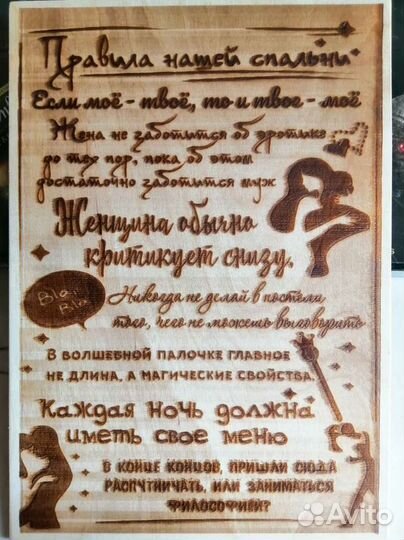 Правила нашей спальни
Если моё - твоё, то и твое - моё
Жена не заботится об эротике
до тех пор, пока об этом
достаточно заботится муж
Женщина обычно
критикует снизу.
Bla
Bla
Никогда не делай в постели
того, чего не можешь выговорить
В ВОЛШЕБНОЙ ПАЛОЧКЕ ГЛАВНОЕ
НЕ ДЛИНА, А МАГИЧЕСКИЕ СВОЙСТВА.
Каждая ночь должна
иметь свое меню
В КОНЦЕ КОНЦОВ, ПРИШЛИ СЮДА
РАСПУТНИЧАТЬ, ИЛИ ЗАНИМАТЬСЯ
ФИЛОСОФИЕЙ?
Avito